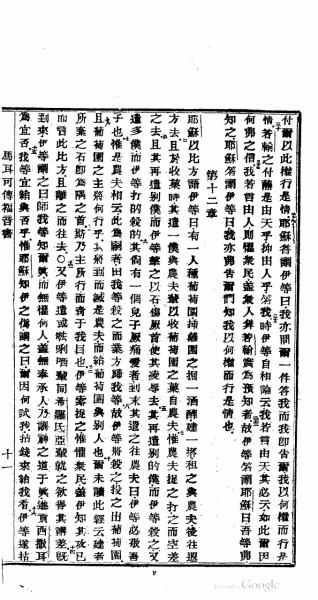 付爾以此權行是情耶穌答謂伊等曰我亦問爾一件答我而我卽告爾我以何權而行是
情若翰之付蘸是由天乎抑由人乎答我時伊等自相論云我若言由天其必云如此爾因
何弗之信我若言由人則懼衆民蓋衆人算若翰實爲預知者故伊等答謂耶穌曰吾等弗
知之耶穌答謂伊等曰我亦弗告爾們知我以何權而行是情也
第十二章
耶穌以比方語伊等曰有一人種葡萄園掃籬圍之掘一酒醡建一塔租之與農夫後往遐
方去且於收菓時其遣一僕與農夫輩以收葡萄園之菓自農夫惟農夫捉之打之而空差
之去且其再遣別僕而伊等擊之以石傷厥首使其凌辱去其再遣別的僕而伊等殺之又
遣多僕而伊等打的殺的其尚有一個兒子厥痛愛者到末其遣之往農夫曰伊等必敬吾
子也惟是農夫相云此爲嗣者由我等殺之而業方歸我等故伊等將殺之投之出葡萄園
且葡萄園之主將何行乎其將到而滅是農夫而給葡萄園與別人也爾未讀此經云建者
所棄之石卽爲隅之首斯乃主所行而奇于我目也伊等欲捉之惟懼衆民蓋伊知其攻已
而言此比方且離之而往去○又伊等遣或𠵽唎哂輩同希羅氏亞輩就之欲得其講差旣
到來伊等謂之曰師我等知爾眞而無懼何人蓋無奉承人乃講解神之道于眞進貢西撒耳
爲宜否我等宜給與否乎惟耶穌知伊之僞謂之曰爾因何試我拈錢來給我看伊等遂拈
馬耳可傳福音書
十一
Google